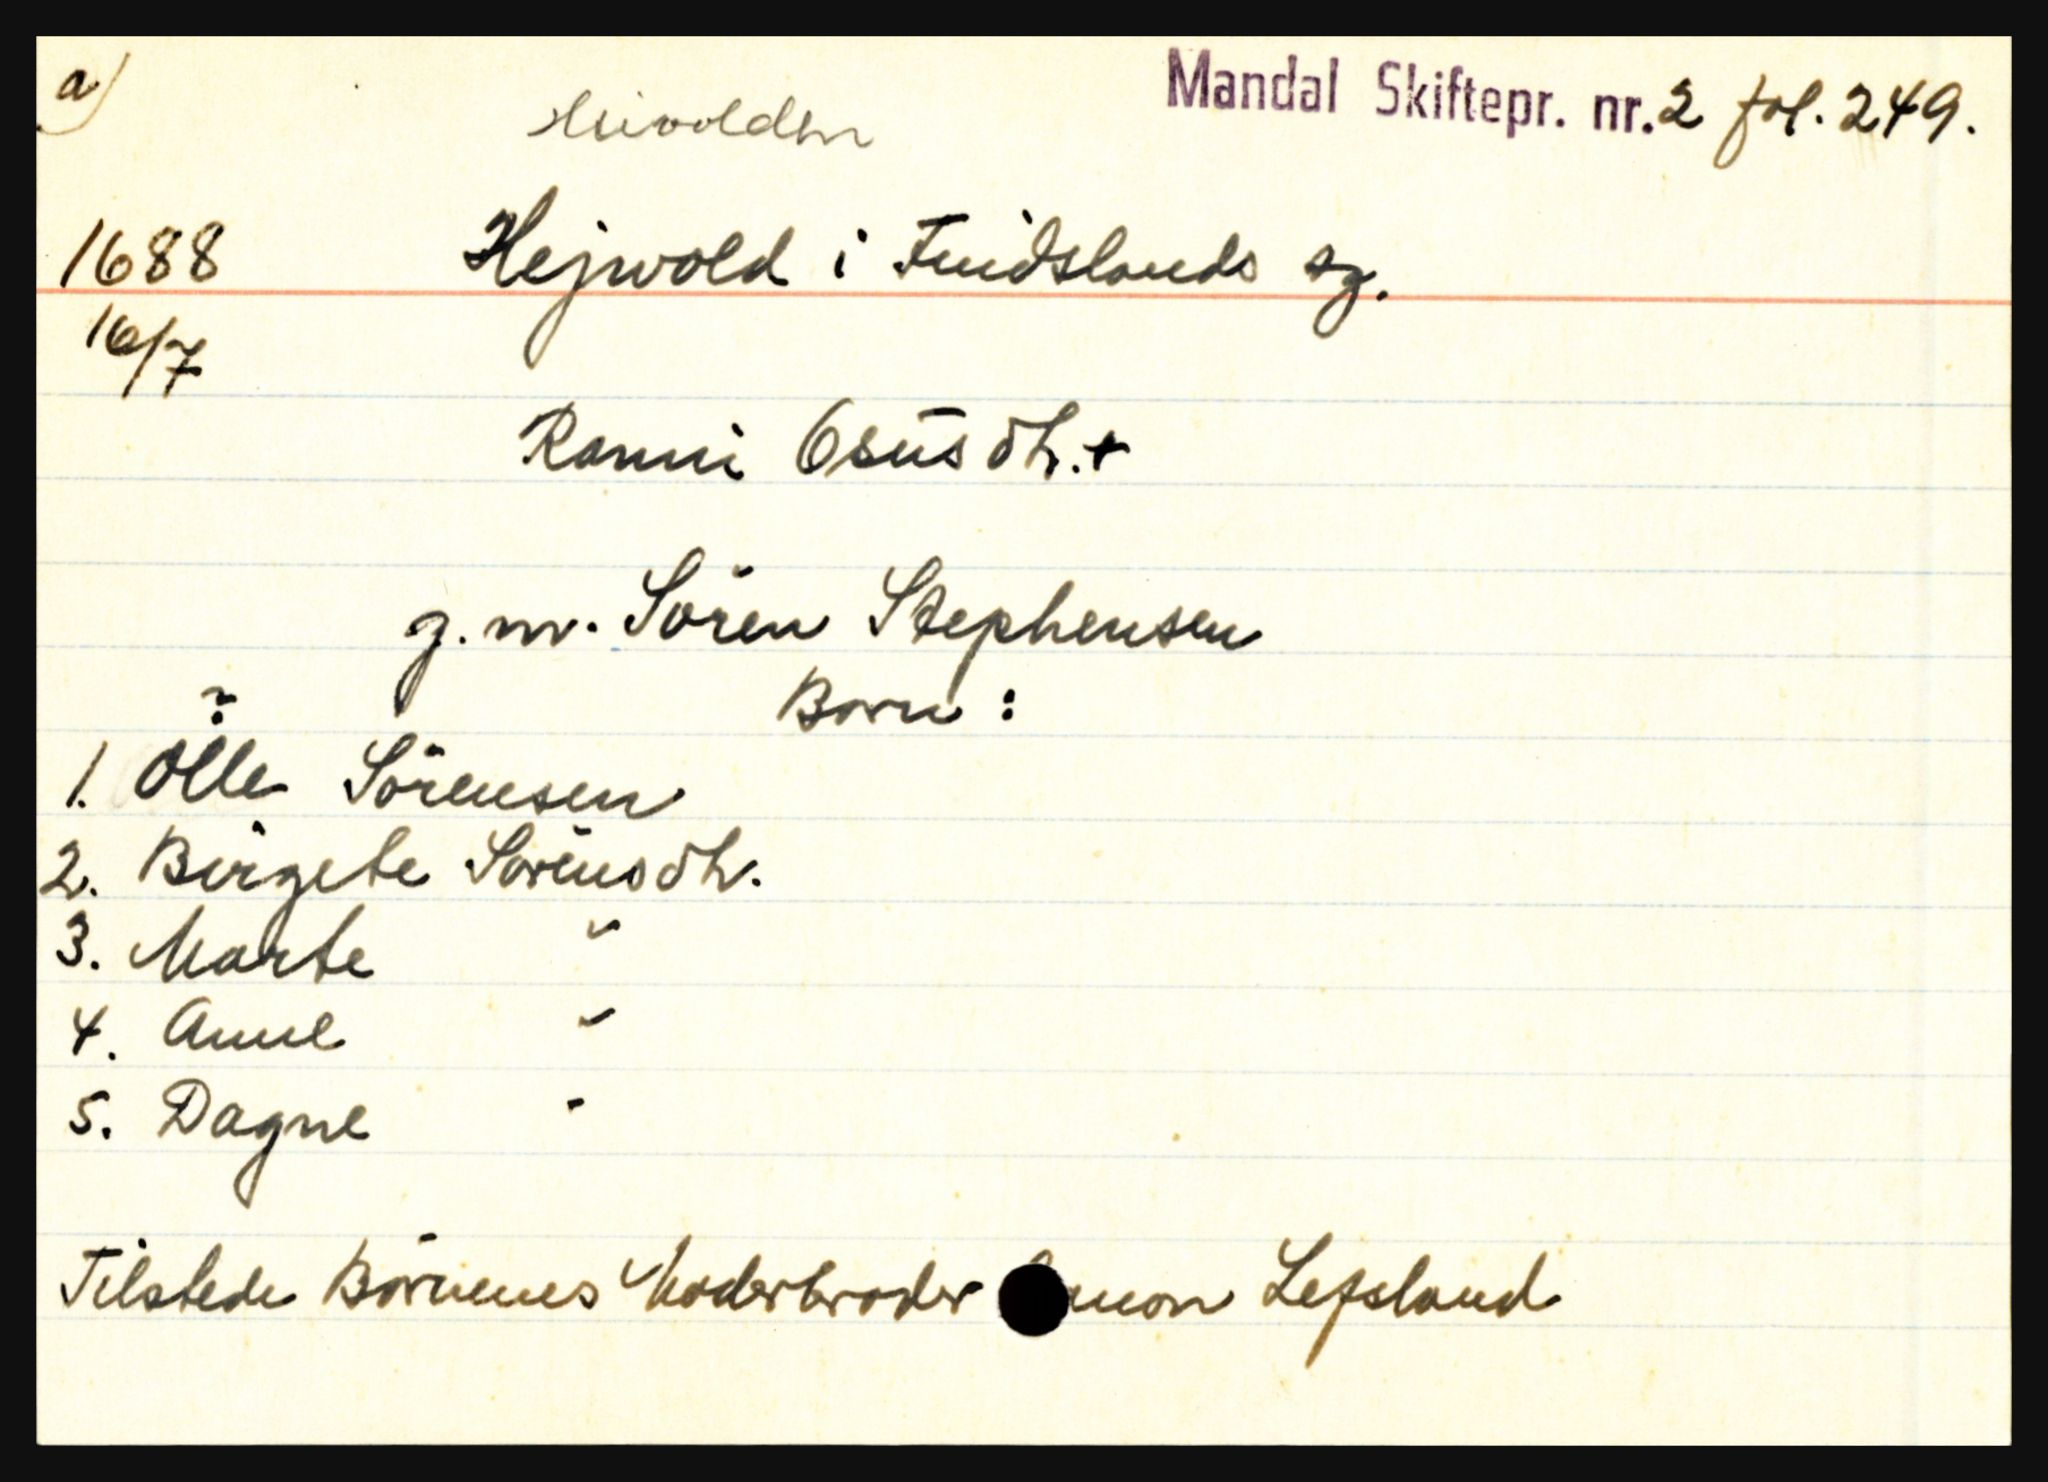 a)
Mandal Skiftepr. nr. 2 fol. 249.
Heivolden
1688 Hejwold i Finidslands sg.
16/7
Ranni Osūs dh. +
g. m. Sören Stephensen
Born :
1. Olle Sörensen
2. Birgete Sorēns dh.
3. Marte "
4. Anne "
5. Dagne "
Tilstede Börnenes Moderbroder Lefsland